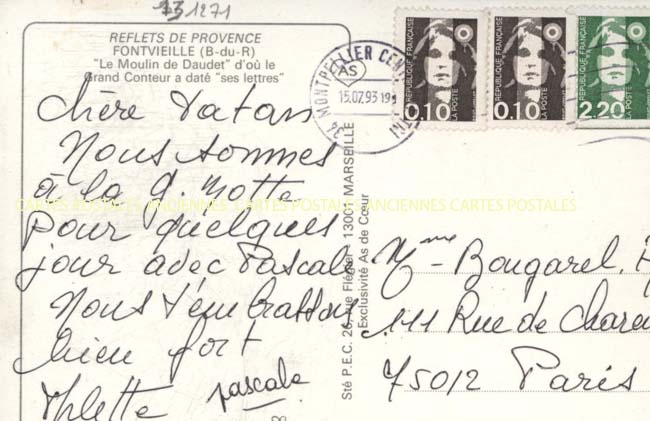 13 1271
REFLETS DE PROVENCE
FONTVIEILLE (B-du-R)
"Le Moulin de Daudet" d'où le
Grand Conteur a daté "ses lettres"
Chère Tatan
Nous sommes
à la G. Motte
pour quelques
jour avec Pascale
Nous t'embrassons
bien fort
pascale
34 MONTPELLIER CEN
AS
15.07.93 19
RÉPUBLIQUE FRANÇAISE
0,10
LA POSTE
RÉPUBLIQUE FRANÇAISE
0,10
LA POSTE
RÉPUBLIQUE FRANÇAISE
2,20
LA POSTE
Exclusivité As de Cœur
CARTES POSTALES ANCIENNES CARTES POSTALES ANCIENNES CARTES POSTALES
Mme Bougarel
111 Rue de
75012 Paris